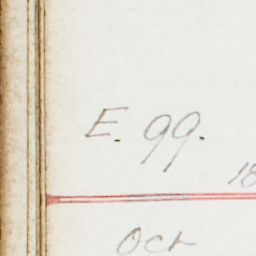 E. 99.
18
Oct